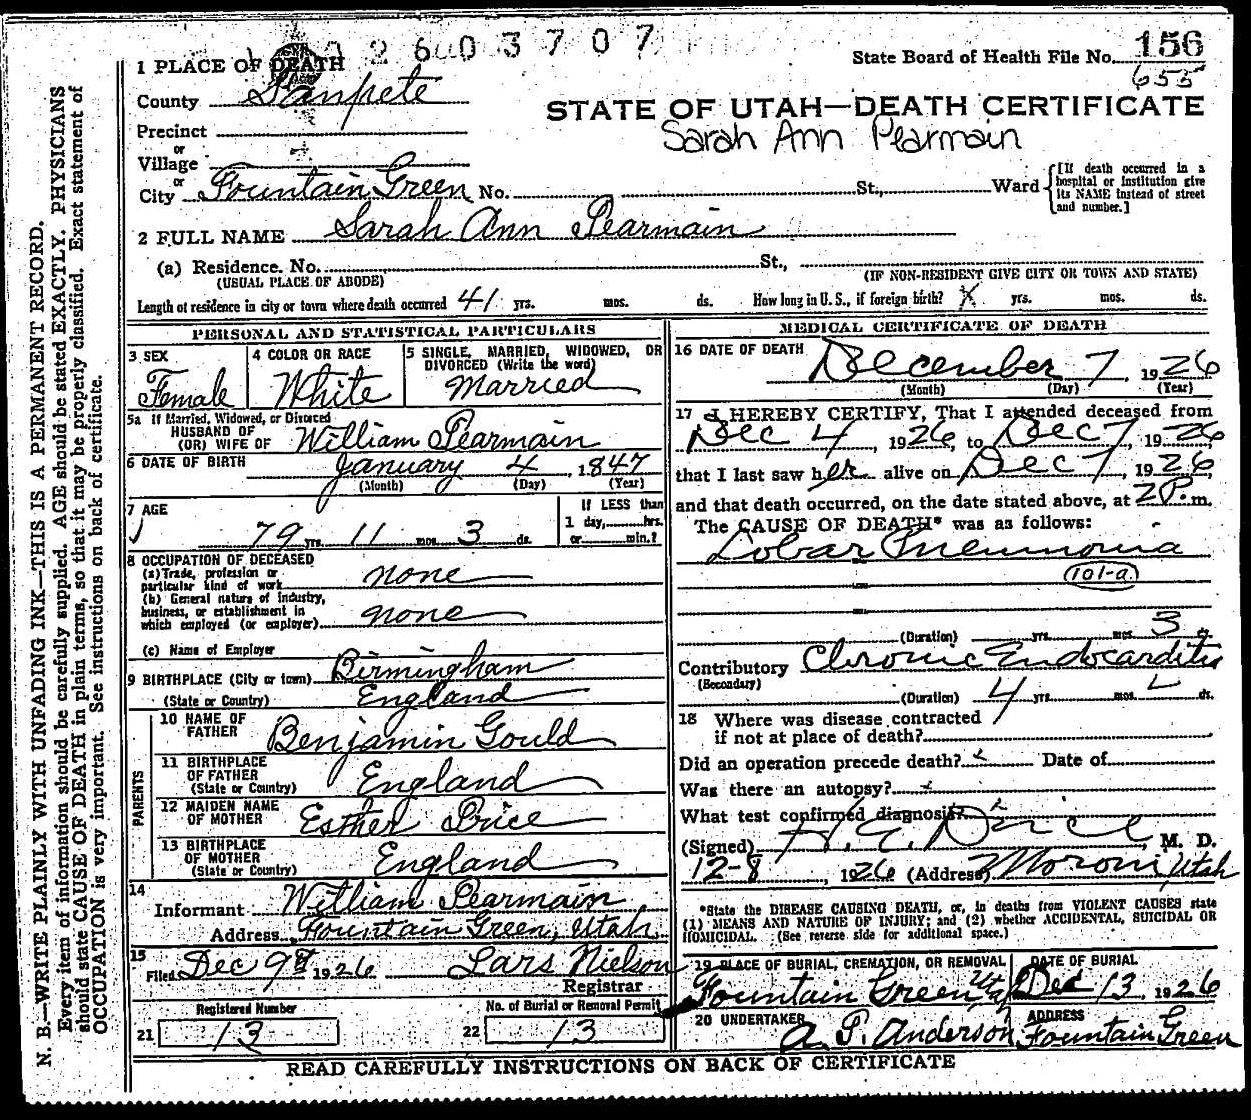 2 6 0 3 7 0 7
1 PLACE OF DEATH
State Board of Health File No. 156
655
County Sanpete
STATE OF UTAH—DEATH CERTIFICATE
Sarah Ann Pearmain
Precinct
or
Village
or
City Fountain Green No. St., Ward
[If death occurred in a hospital or institution give its NAME instead of street and number.]
2 FULL NAME Sarah Ann Pearmain
(a) Residence. No. St.,
(USUAL PLACE OF ABODE) (IF NON-RESIDENT GIVE CITY OR TOWN AND STATE)
Length of residence in city or town where death occurred 41 yrs. mos. ds. How long in U. S., if foreign birth? X yrs. mos. ds.
PERSONAL AND STATISTICAL PARTICULARS
3 SEX
Female
4 COLOR OR RACE
White
5 SINGLE, MARRIED, WIDOWED, OR
DIVORCED (Write the word)
Married
5a If Married, Widowed, or Divorced
HUSBAND OF
(OR) WIFE OF William Pearmain
6 DATE OF BIRTH January 4, 1847
(Month) (Day) (Year)
7 AGE
79 yrs. 11 mos. 3 ds.
If LESS than
1 day, hrs.
or min.?
8 OCCUPATION OF DECEASED
(a) Trade, profession or
particular kind of work none
(b) General nature of industry,
business, or establishment in
which employed (or employer) none
(c) Name of Employer
9 BIRTHPLACE (City or town) Birmingham
(State or Country) England
PARENTS
10 NAME OF
FATHER Benjamin Gould
11 BIRTHPLACE
OF FATHER
(State or Country) England
12 MAIDEN NAME
OF MOTHER Esther Price
13 BIRTHPLACE
OF MOTHER
(State or Country) England
14
Informant William Pearmain
Address Fountain Green, Utah
15
Filed Dec 9th 1926 Lars Nielson
Registrar
Registered Number
21 13
No. of Burial or Removal Permit
22 13
MEDICAL CERTIFICATE OF DEATH
16 DATE OF DEATH December 7, 1926
(Month) (Day) (Year)
17 I HEREBY CERTIFY, That I attended deceased from
Dec 4, 1926, to Dec 7, 1926
that I last saw her alive on Dec 7, 1926,
and that death occurred, on the date stated above, at 2 P. m.
The CAUSE OF DEATH* was as follows:
Lobar Pneumonia
101-a
(Duration) yrs. mos. 3
Contributory Chronic Endocarditis
(Secondary)
(Duration) 4 yrs. mos. ds.
18 Where was disease contracted
if not at place of death?
Did an operation precede death? Date of
Was there an autopsy?
What test confirmed diagnosis?
(Signed) M. D.
12-8, 1926 (Address) Moroni, Utah
*State the DISEASE CAUSING DEATH, or, in deaths from VIOLENT CAUSES state
(1) MEANS AND NATURE OF INJURY; and (2) whether ACCIDENTAL, SUICIDAL OR
HOMICIDAL. (See reverse side for additional space.)
19 PLACE OF BURIAL, CREMATION, OR REMOVAL
Fountain Green Utah
DATE OF BURIAL
Dec 13, 1926
20 UNDERTAKER
A. P. Anderson
ADDRESS
Fountain Green
READ CAREFULLY INSTRUCTIONS ON BACK OF CERTIFICATE
N. B.—WRITE PLAINLY WITH UNFADING INK—THIS IS A PERMANENT RECORD.
Every item of information should be carefully supplied. AGE should be stated EXACTLY. PHYSICIANS
should state CAUSE OF DEATH in plain terms, so that it may be properly classified. Exact statement of
OCCUPATION is very important. See instructions on back of certificate.